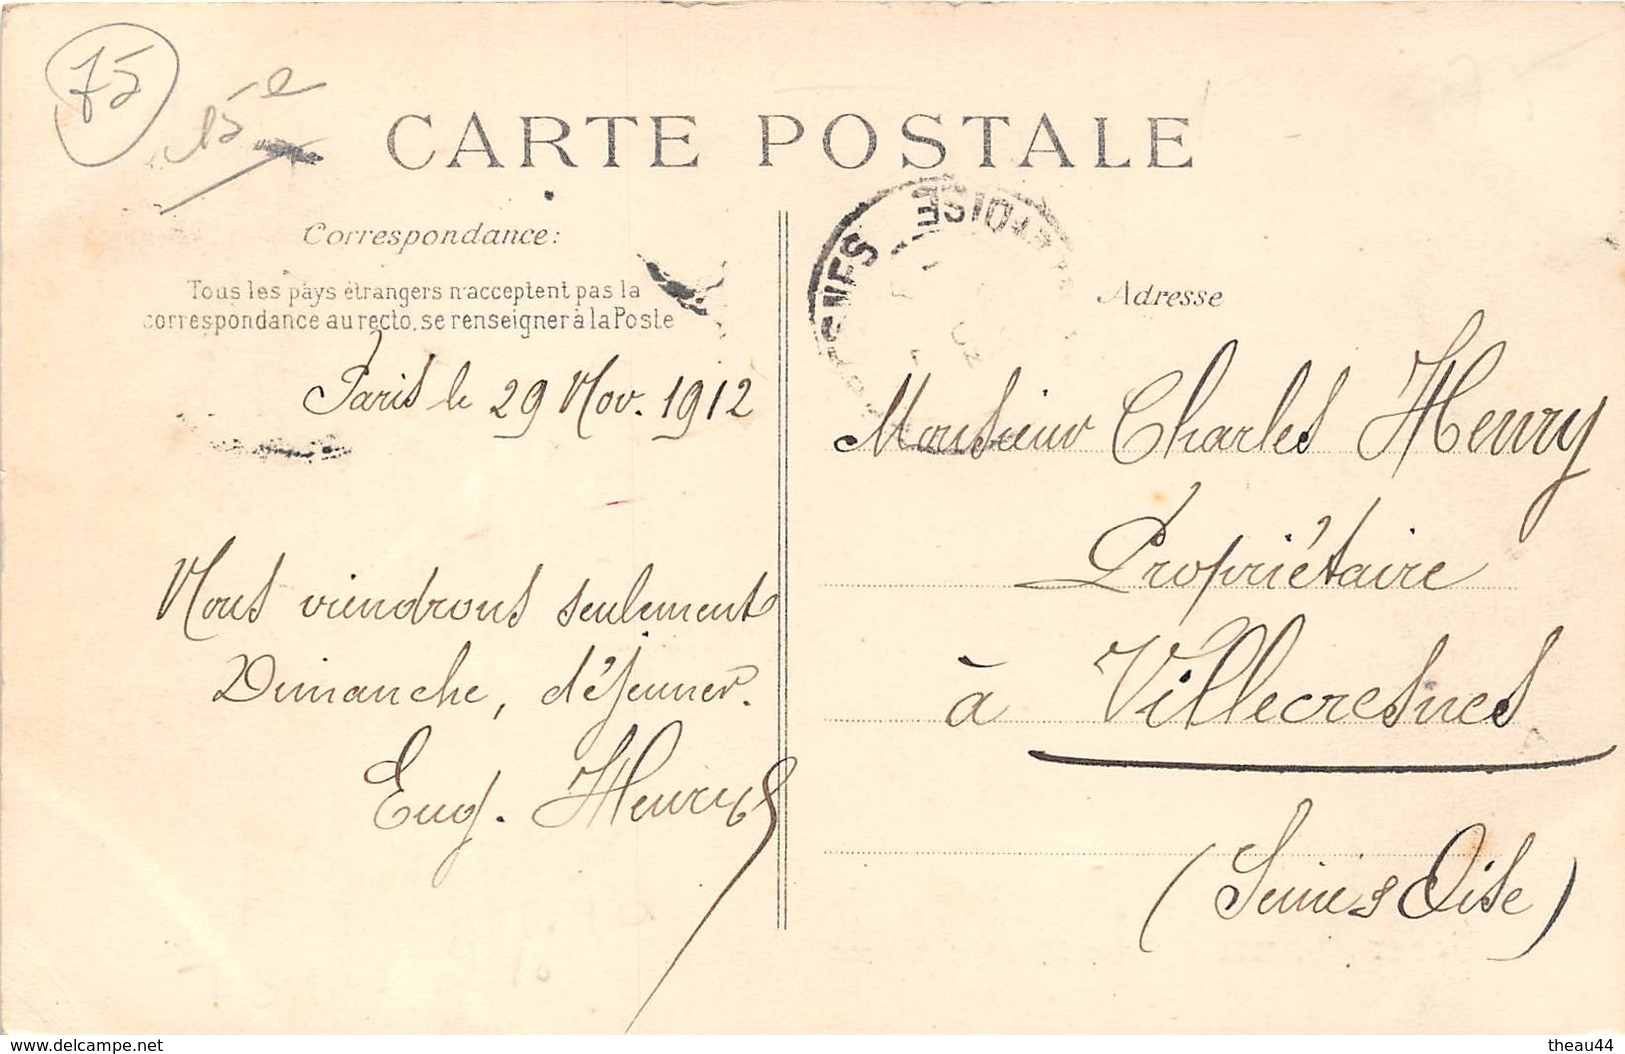 75
15e
CARTE POSTALE
Correspondance:
Tous les pays étrangers n'acceptent pas la
correspondance au recto, se renseigner à la Poste
Paris le 29 Nov. 1912
Nous viendrons seulement
Dimanche, déjeuner.
Eug. Henry
OISE
Adresse
Monsieur Charles Henry
Propriétaire
à Villecresnes
(Seine & Oise)
www.delcampe.net
theau44